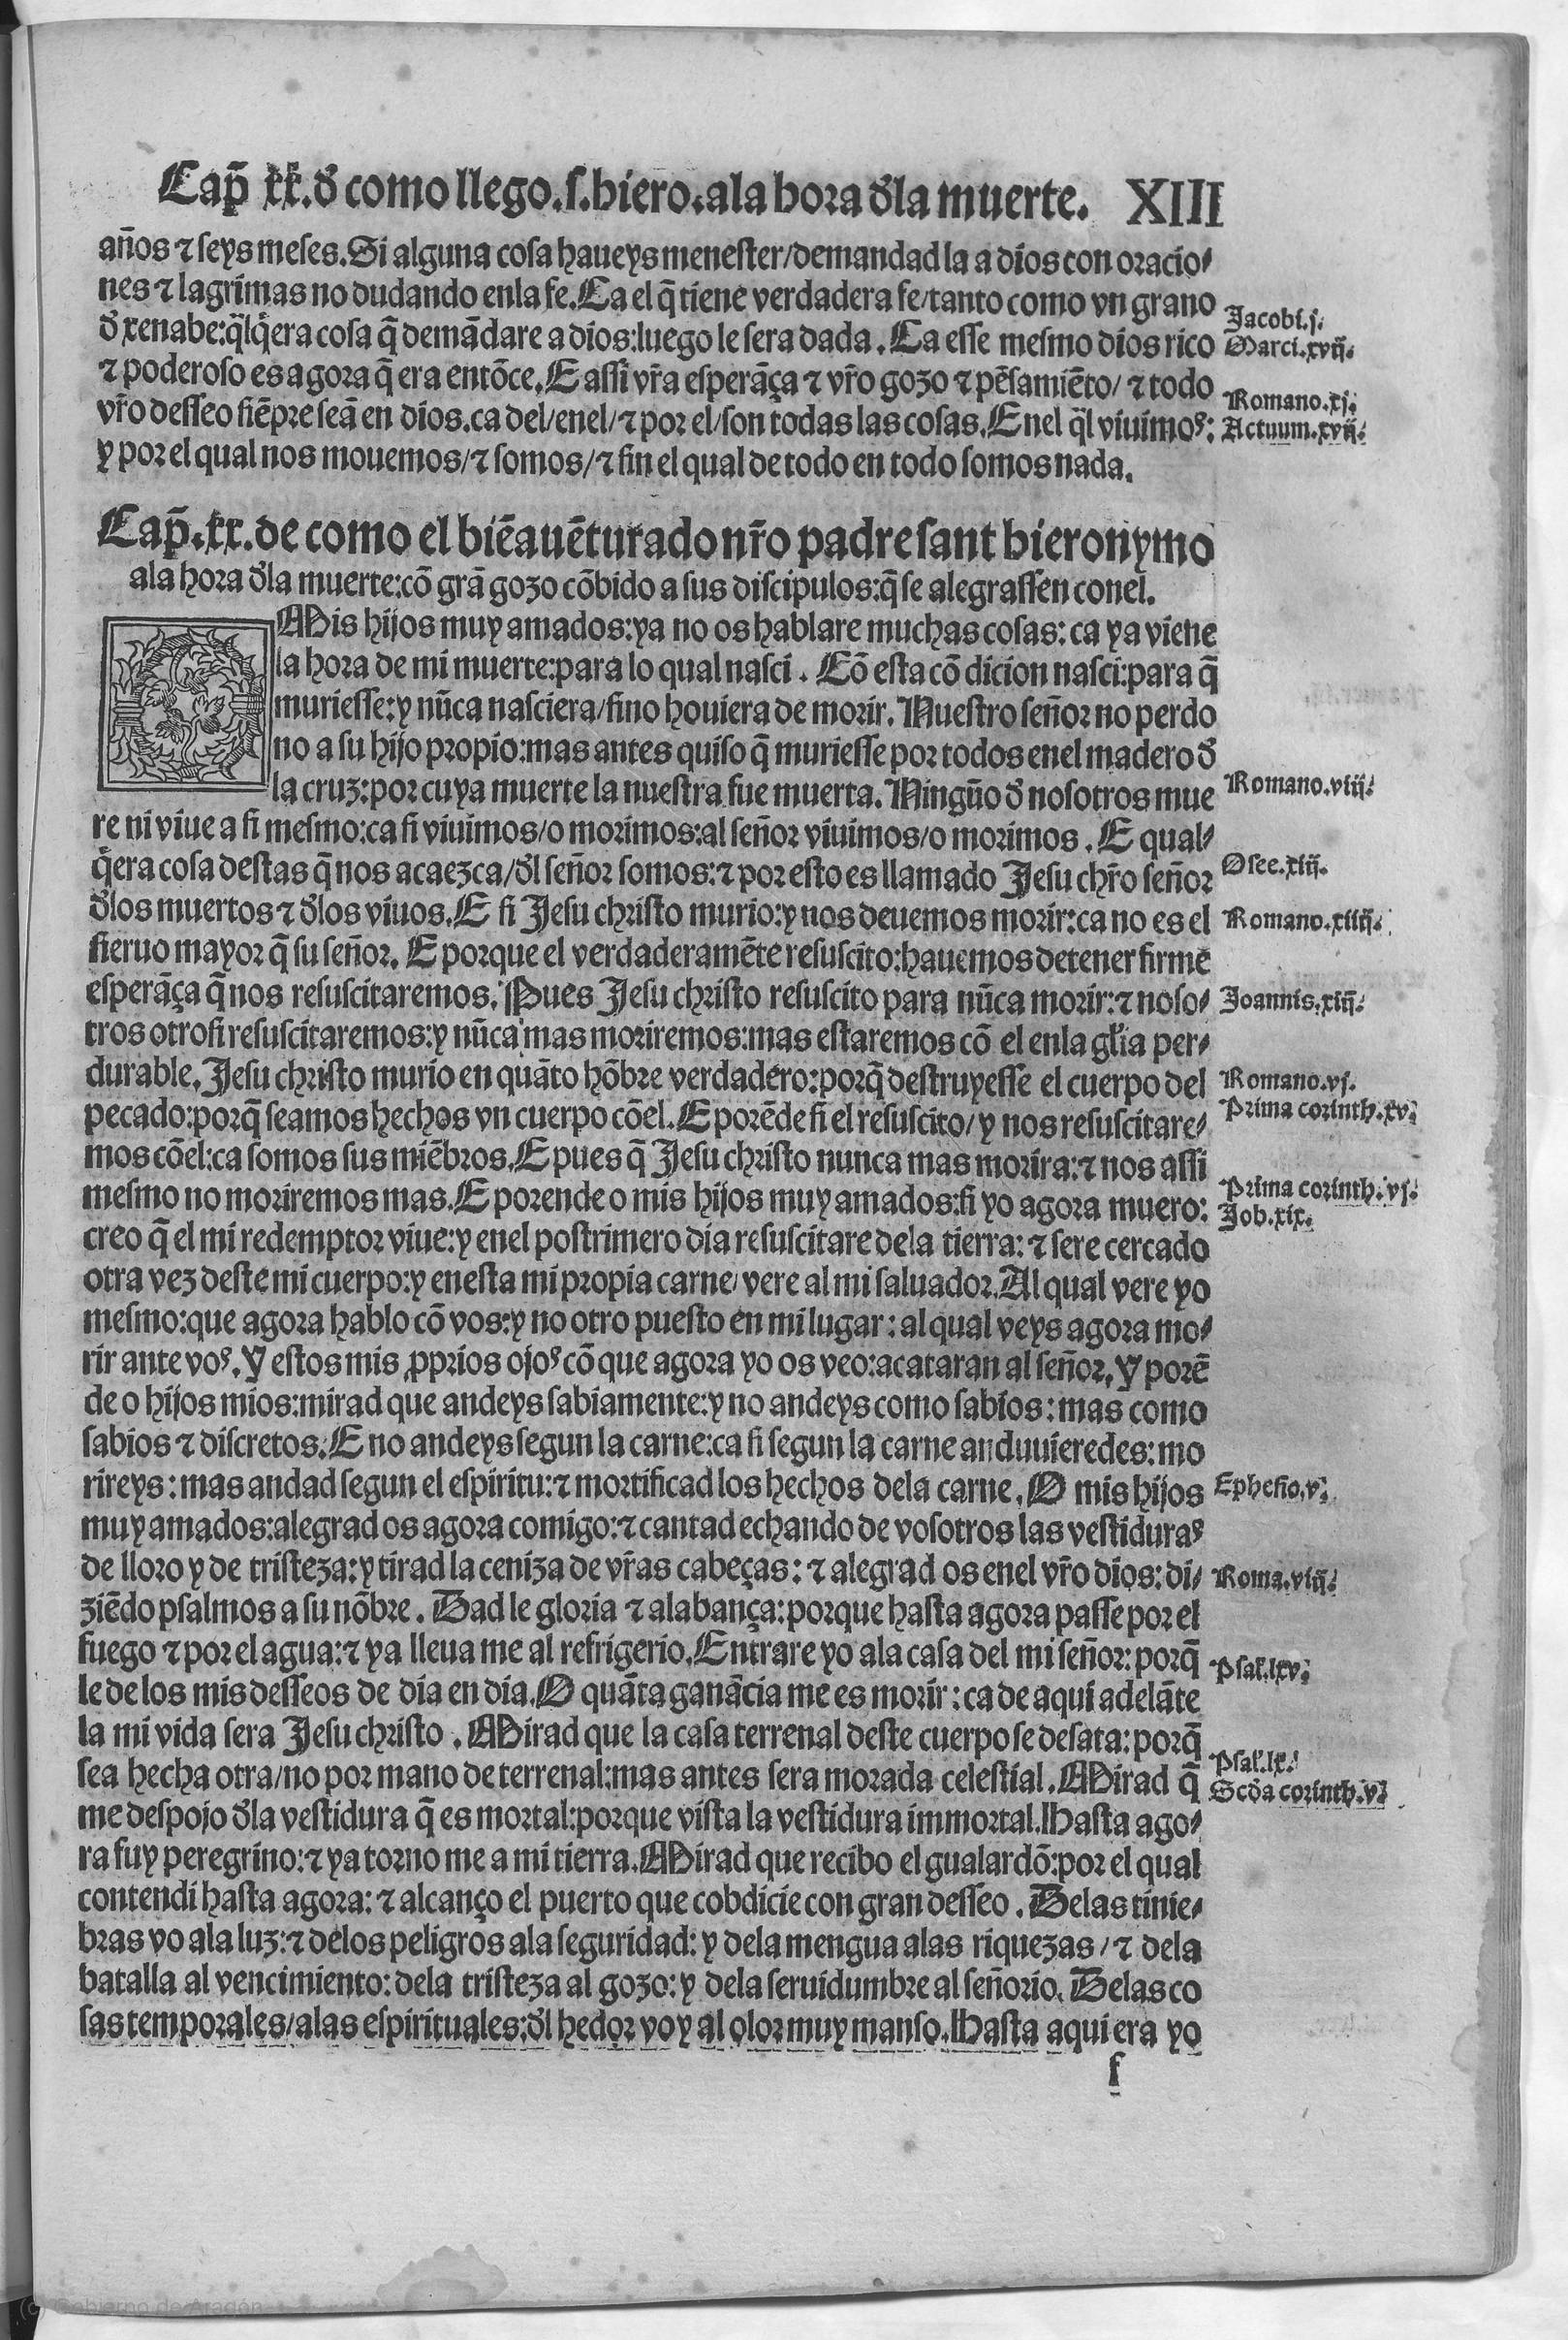 Cap̃ xx. đ como llego. s. hiero. ala hora đla muerte. XIII
años ⁊ seys meses. Si alguna cosa haueys menester/demandad la a dios con oracio-
nes ⁊ lagrimas no dudando enla fe. Ca el q̃ tiene verdadera fe/tanto como vn grano
đ xenabe: q̃lq̃era cosa q̃ demãdare a dios: luego le sera dada. Ca esse mesmo dios rico
Jacobi. j.
Marci. xvij.
⁊ poderoso es agora q̃ era entõce. E assi vr̃a esperãça ⁊ vr̃o gozo ⁊ pẽsamiẽto/ ⁊ todo
vr̃o desseo siẽpre seã en dios. ca del/enel/⁊ por el/son todas las cosas. Enel q̃l viuimos:
Romano. xj.
Actuum. xvij.
y por el qual nos mouemos/⁊ somos/⁊ sin el qual de todo en todo somos nada.
Cap̃. xx. de como el biẽauẽturado nr̃o padre sant hieronymo
ala hora đla muerte: cõ grã gozo cõbido a sus discipulos: q̃ se alegrassen conel.
O Mis hijos muy amados: ya no os hablare muchas cosas: ca ya viene
la hora de mi muerte: para lo qual nasci. Cõ esta cõdicion nasci: para q̃
muriesse: y nũca nasciera/sino houiera de morir. Nuestro señor no perdo
no a su hijo propio: mas antes quiso q̃ muriesse por todos enel madero đ
la cruz: por cuya muerte la nuestra fue muerta. Ningũo đ nosotros mue
Romano. viij.
re ni viue a si mesmo: ca si viuimos/o morimos: al señor viuimos/o morimos. E qual-
q̃era cosa destas q̃ nos acaezca/đl señor somos: ⁊ por esto es llamado Jesu chr̃o señor
Osee. xiij.
đlos muertos ⁊ đlos viuos. E si Jesu christo murio: y nos deuemos morir: ca no es el
Romano. xiiij.
sieruo mayor q̃ su señor. E porque el verdaderamẽte resuscito: hauemos de tener firme
esperãça q̃ nos resuscitaremos. Pues Jesu christo resuscito para nũca morir: ⁊ noso-
Joannis. xiij.
tros otrosi resuscitaremos: y nũca mas moriremos: mas estaremos cõ el enla gl̃ia per-
durable. Jesu christo murio en quãto hõbre verdadero: porq̃ destruyesse el cuerpo del
Romano. vj.
pecado: porq̃ seamos hechos vn cuerpo cõel. E porẽde si el resuscito/ y nos resuscitare-
Prima corinth. xv.
mos cõel: ca somos sus miẽbros. E pues q̃ Jesu christo nunca mas morira: ⁊ nos assi
mesmo no moriremos mas. E porende o mis hijos muy amados: si yo agora muero:
Prima corinth. vj.
Job. xix.
creo q̃ el mi redemptor viue: y enel postrimero dia resuscitare dela tierra: ⁊ sere cercado
otra vez deste mi cuerpo: y enesta mi propia carne/ vere al mi saluador. Al qual vere yo
mesmo: que agora hablo cõ vos: y no otro puesto en mi lugar: al qual veys agora mo-
rir ante vos. Y estos mis ꝓprios ojos cõ que agora yo os veo: acataran al señor. Y porẽ
de o hijos mios: mirad que andeys sabiamente: y no andeys como sabios: mas como
sabios ⁊ discretos. E no andeys segun la carne: ca si segun la carne anduuieredes: mo
rireys: mas andad segun el espiritu: ⁊ mortificad los hechos dela carne. O mis hijos
Ephesio. v.
muy amados: alegrad os agora comigo: ⁊ cantad echando de vosotros las vestiduras
de lloro y de tristeza: y tirad la ceniza de vr̃as cabeças: ⁊ alegrad os enel vr̃o dios: di-
Roma. viij.
ziẽdo psalmos a su nõbre. Dad le gloria ⁊ alabança: porque hasta agora passe por el
fuego ⁊ por el agua: ⁊ ya lleua me al refrigerio. Entrare yo ala casa del mi señor: porq̃
Psal. lxv.
le de los mis desseos de dia en dia. O quãta ganãcia me es morir: ca de aqui adelãte
la mi vida sera Jesu christo. Mirad que la casa terrenal deste cuerpo se desata: porq̃
sea hecha otra/no por mano de terrenal: mas antes sera morada celestial. Mirad q̃
Psal. lx.
Scđa corinth. v.
me despojo đla vestidura q̃ es mortal: porque vista la vestidura immortal. Hasta ago-
ra fuy peregrino: ⁊ ya torno me a mi tierra. Mirad que recibo el gualardõ: por el qual
contendi hasta agora: ⁊ alcanço el puerto que cobdicie con gran desseo. Delas tinie-
bras vo ala luz: ⁊ delos peligros ala seguridad: y dela mengua alas riquezas/ ⁊ dela
batalla al vencimiento: dela tristeza al gozo: y dela seruidumbre al señorio. Delas co
sas temporales/alas espirituales: đl hedor voy al olor muy manso. Hasta aqui era yo
f
(c) Gobierno de Aragón